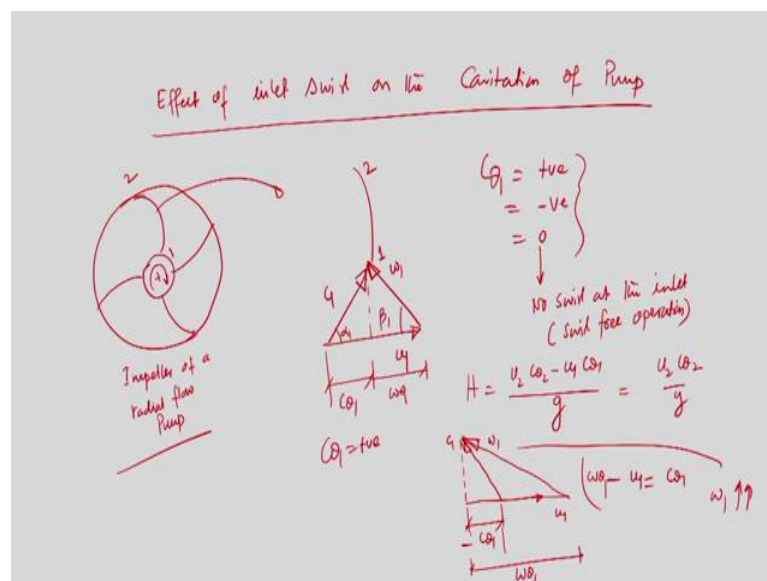 Effect of inlet swirl on the Cavitation of Pump
2
1
Impeller of a
radial flow
Pump
2
1
C₁
w₁
α₁
β₁
u₁
Cθ₁
wθ₁
Cθ₁ = +ve
Cθ₁ = +ve
= -ve
= 0
No swirl at the inlet
(swirl free operation)
H = (U₂ Cθ₂ - U₁ Cθ₁) / g = U₂ Cθ₂ / g
C₁
w₁
u₁
- Cθ₁
wθ₁
(wθ₁ - u₁ = Cθ₁
w₁ ↑↑